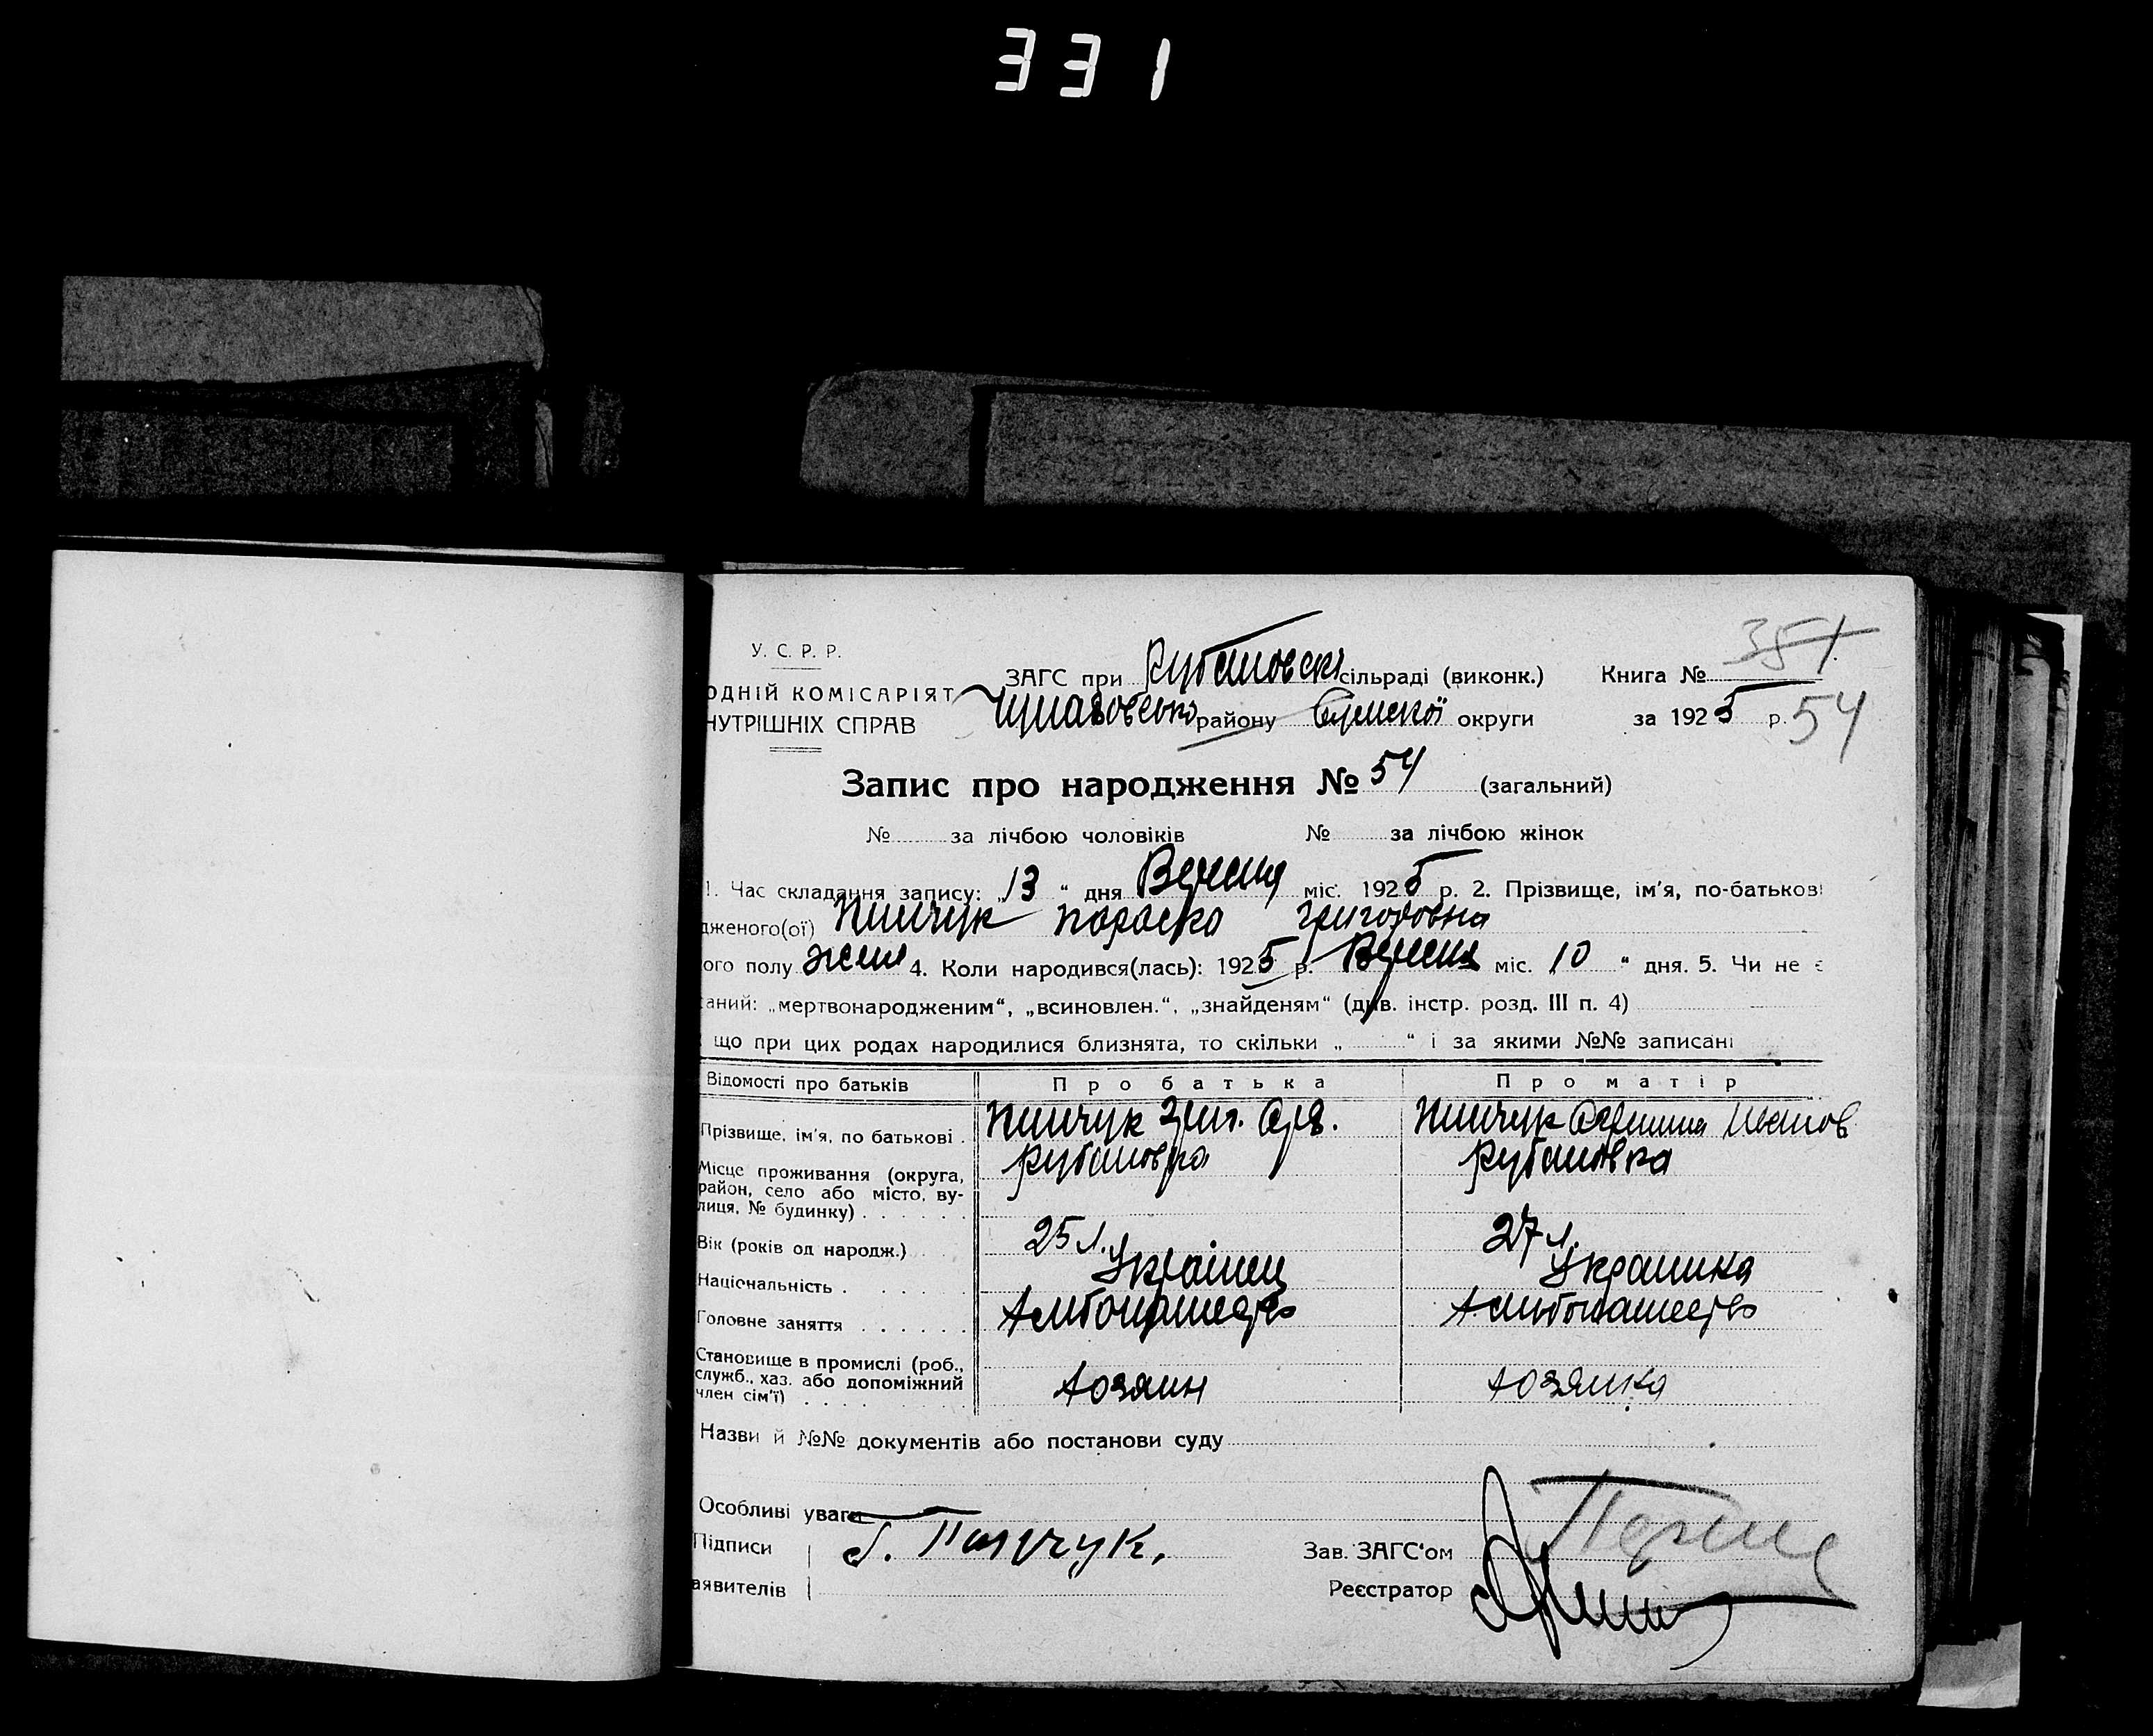 331
У. С. Р. Р.
ОДНІЙ КОМІСАРІЯТ
НУТРІШНІХ СПРАВ
ЗАГС при Рубановскі сільраді (виконк.) Книга № 351
району Сумської округи за 1925 р. 54
Запис про народження № 54 (загальний)
№ за лічбою чоловіків № за лічбою жінок
1. Час складання запису: „13“ дня Вересня міс. 1925 р. 2. Прізвище, ім'я, по-батькові
дженого(ої) Пинчук Параска Григоровна
ого полу жен 4. Коли народився(лась): 1925 р. Вересня міс. 10 “ дня. 5. Чи не є
саний: „мертвонародженим“, „всиновлен.“, „знайденям“ (див. інстр. розд. III п. 4)
що при цих родах народилися близнята, то скільки „ “ і за якими №№ записані
Відомості про батьків Про батька Про матір
Прізвище, ім'я, по батькові . Пинчук Григ. Пинчук Иванов
Місце проживання (округа, район, село або місто, вулиця, № будинку) Рубановка Рубановка
Вік (років од народж.) 25 л. 27 л.
Національність Українец Украинка
Головне заняття Хлібопашество Хлибопашество
Становище в промислі (роб., служб., хаз. або допоміжний член сім'ї) Хозяин Хозяйка
Назви й №№ документів або постанови суду
Особливі уваги
Підписи Г. Пинчук.
аявителів
Зав. ЗАГС'ом
Реєстратор